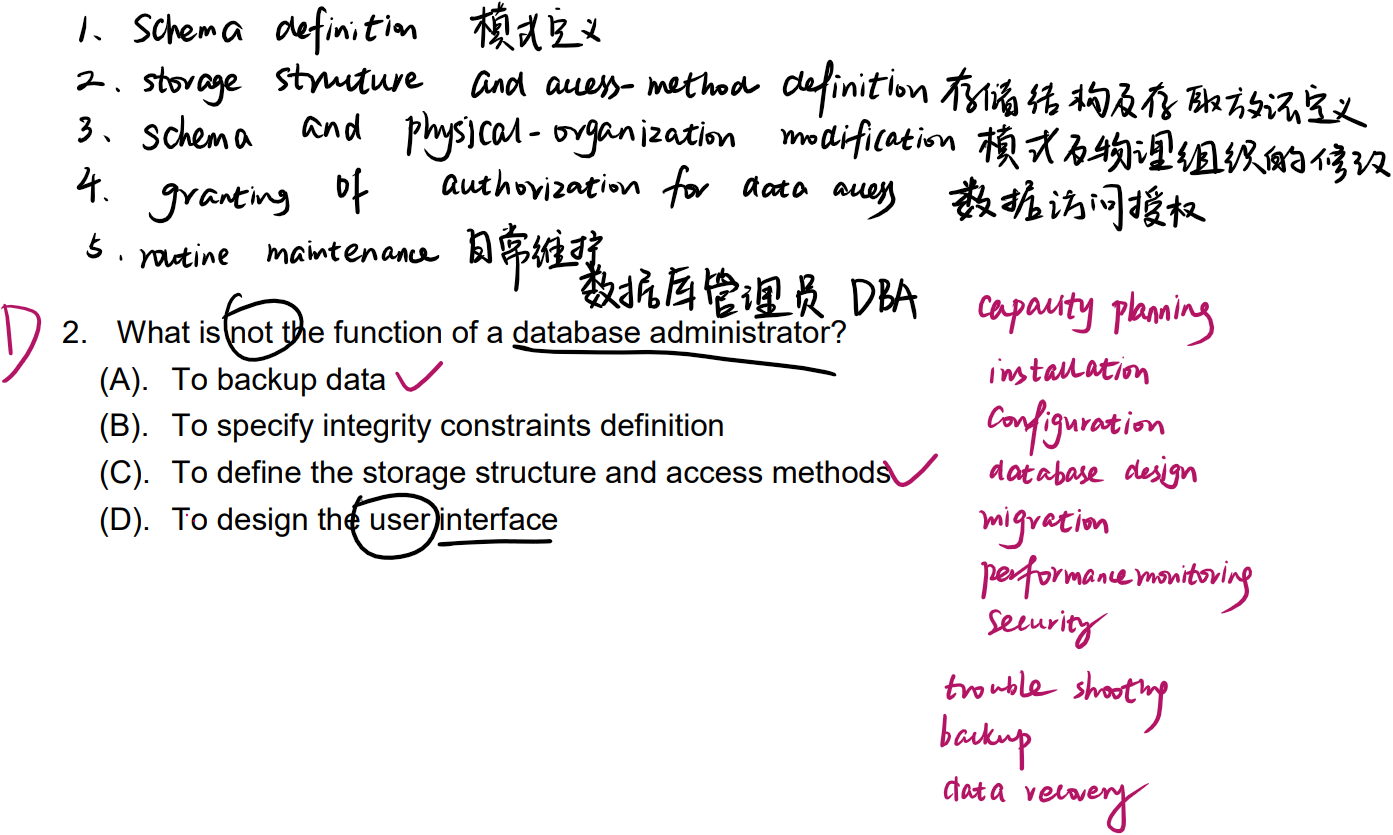 1、Schema definition 模式定义
2. storage structure and access-method definition 存储结构及存取方法定义
3、schema and physical-organization modification 模式及物理组织的修改
4. granting of authorization for data access 数据访问授权
5. routine maintenance 日常维护
数据库管理员 DBA
D
2. What is not the function of a database administrator?
(A). To backup data
(B). To specify integrity constraints definition
(C). To define the storage structure and access methods
(D). To design the user interface
capacity planning
installation
Configuration
database design
migration
performance monitoring
Security
trouble shooting
backup
data recovery